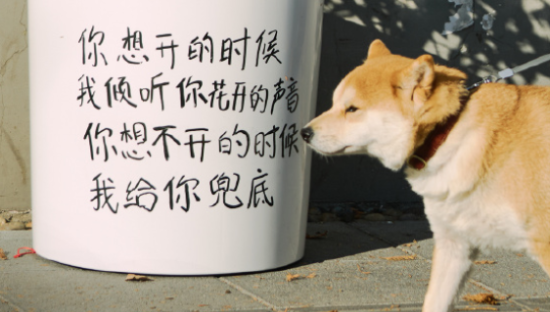 你想开的时候
我倾听你花开的声音
你想不开的时候
我给你兜底